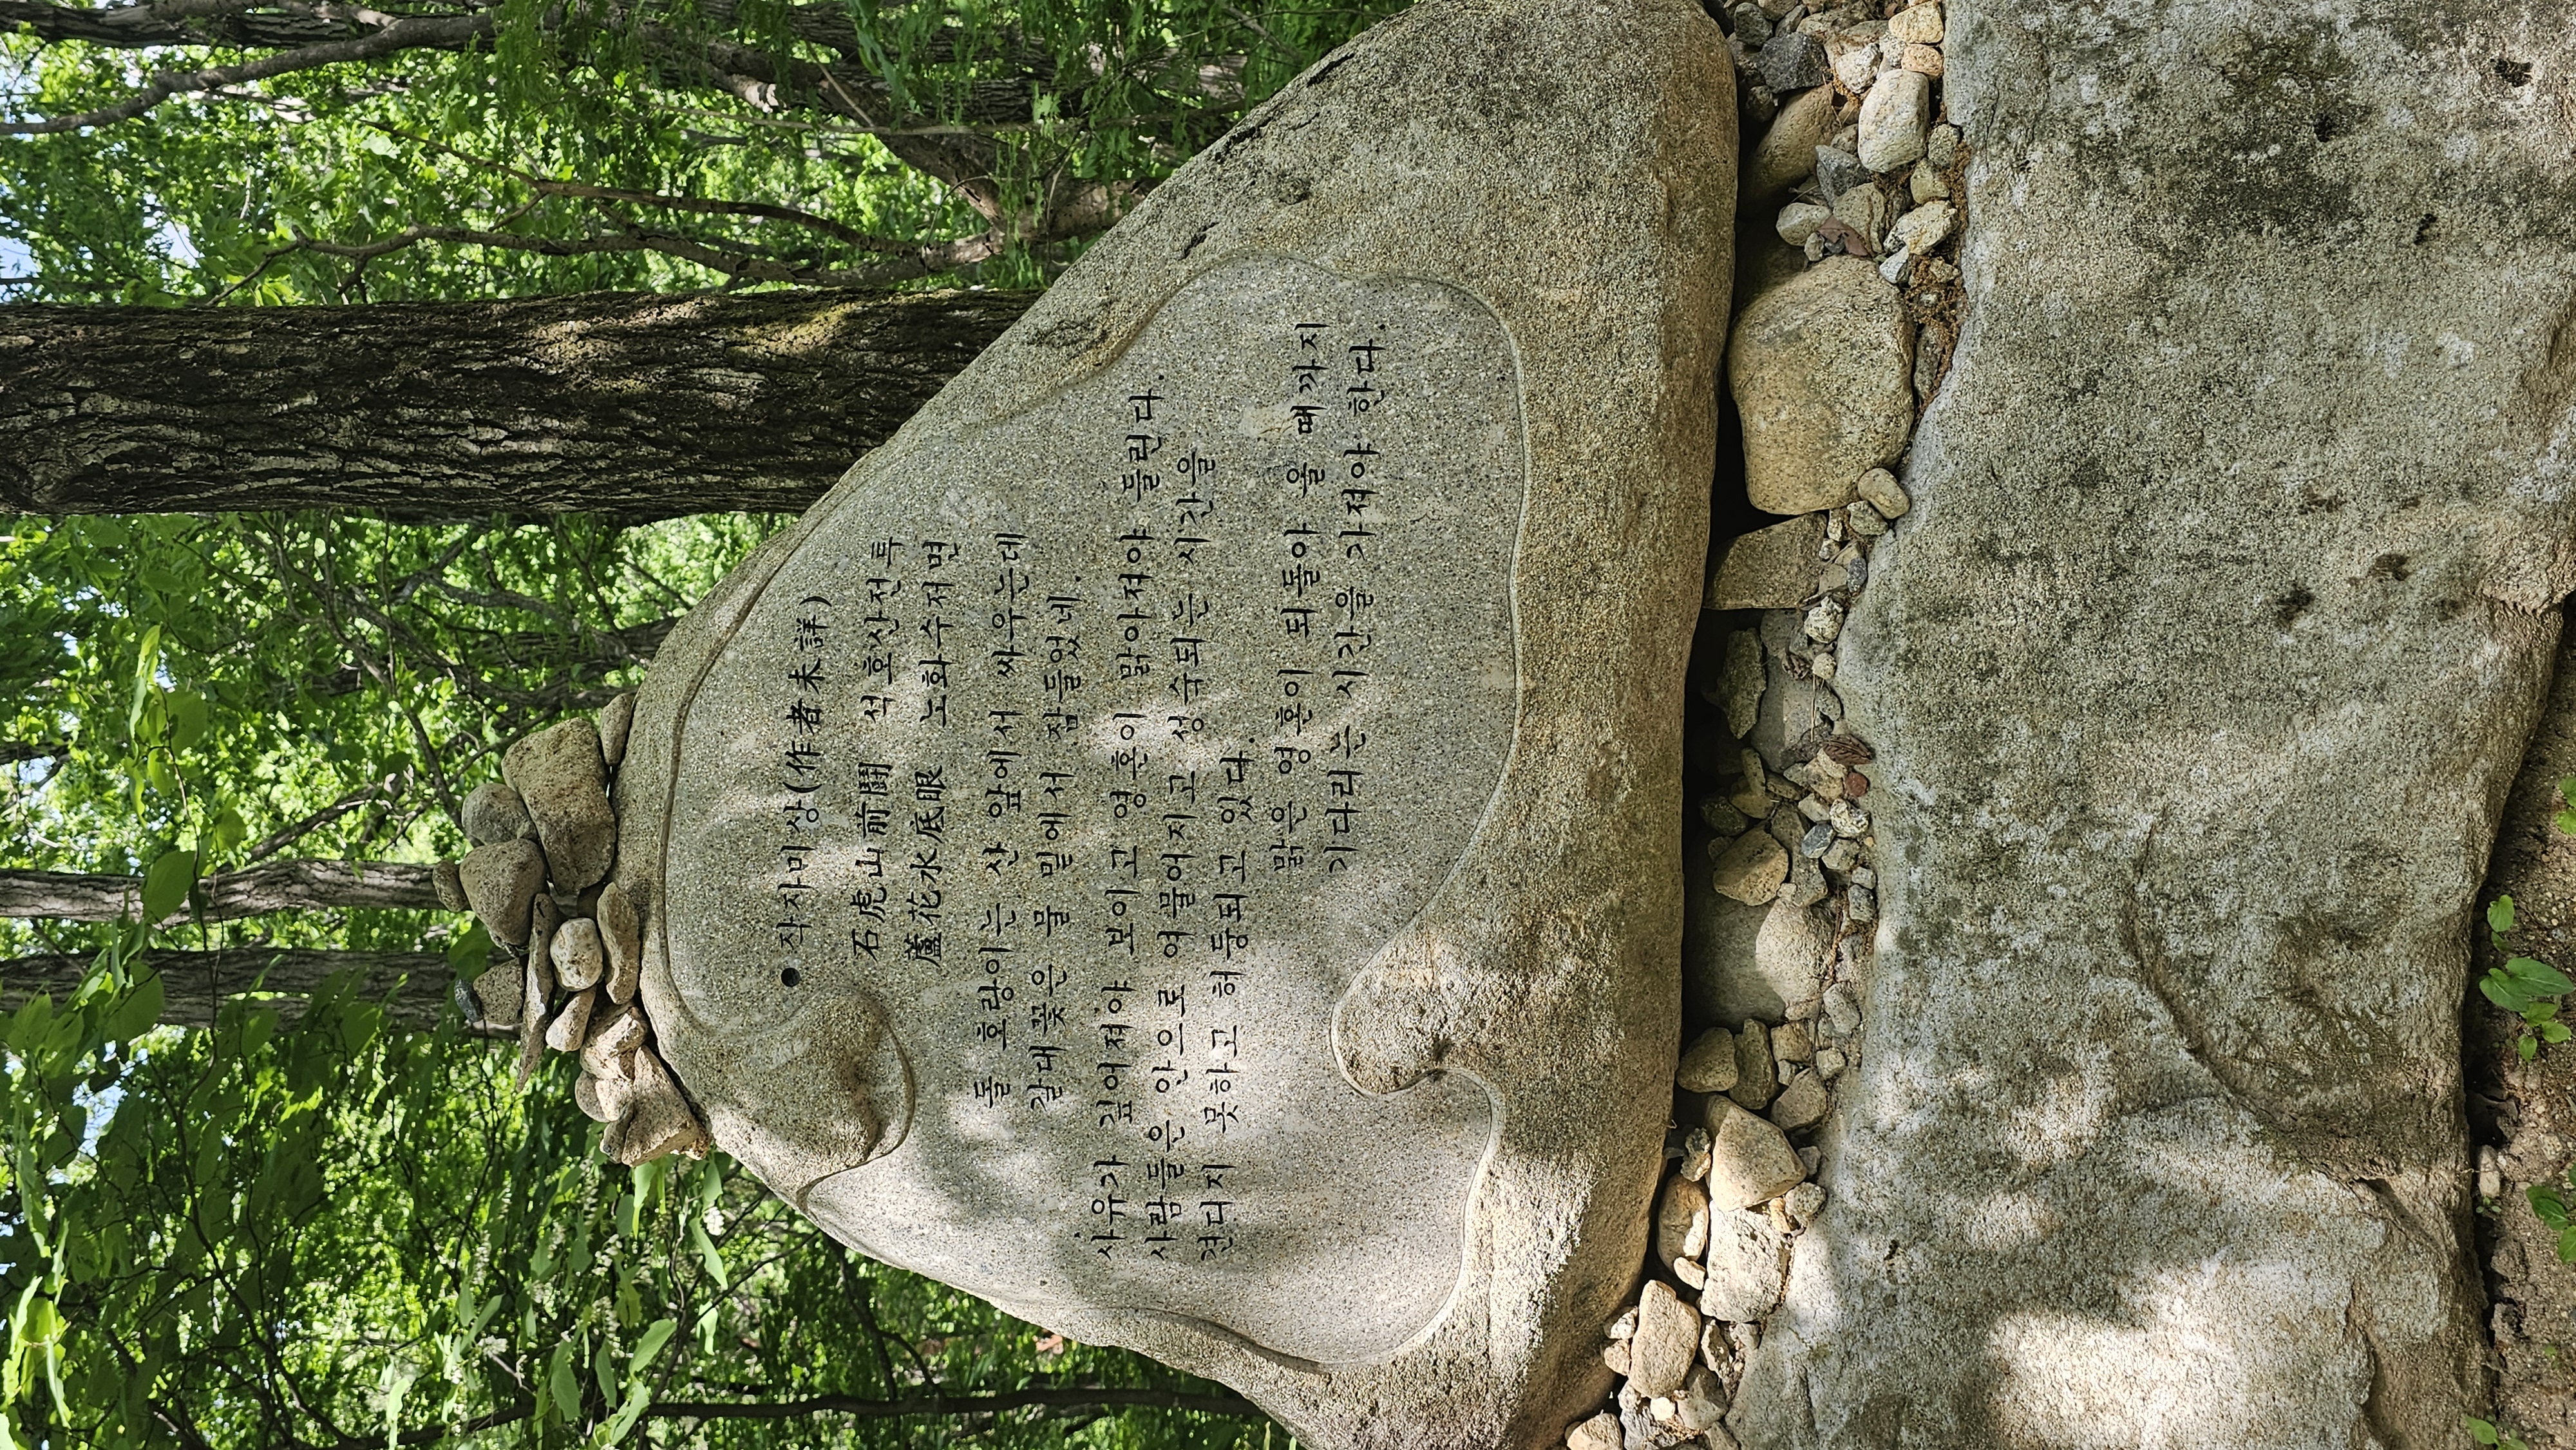 ● 작자미상(作者未詳)
石虎山前鬪 석호산전투
蘆花水底眠 노화수저면
돌 호랑이는 산 앞에서 싸우는데
갈대꽃은 물 밑에서 잠들었네.
사유가 깊어져야 보이고 영혼이 맑아져야 들린다.
사람들은 안으로 여물어지고 성숙되는 시간을
견디지 못하고 허둥되고 있다.
맑은 영혼이 되돌아 올 때까지
기다리는 시간을 가져야 한다.